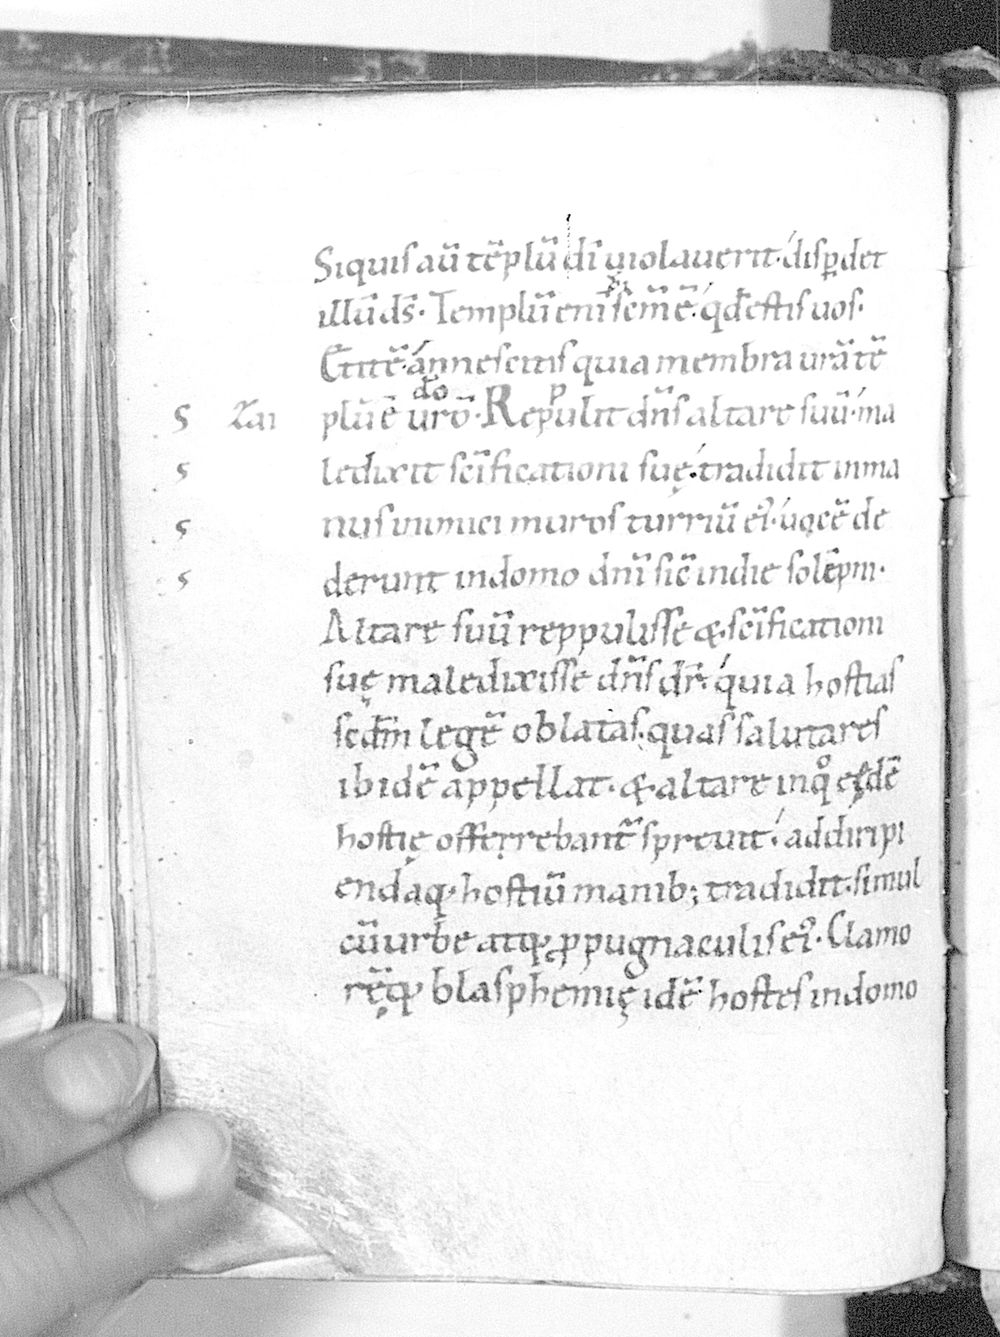 Siquis aũ tẽplũ dĩ violauerit· disꝑdet
illũ ds̃· Templũ enĩ sc̃m ẽ· qđ estis uos·
Et itẽ· an nescitis quia membra urã tẽ
S Zai plũ ẽ urõ· Repulit dñs altare suũ· ma
S ledixit sc̃ificationi suę· tradidit in ma
S nus inimici muros turriũ eiꝰ· uocẽ de
S derunt in domo dñi sič in die solẽpni·
Altare suũ reppulisse &· sc̃ificationi
suę maledixisse dñs dr̃· quia hostias
scđm legẽ oblatas· quas salutares
ibidẽ appellat· &· altare in qͦ eędẽ
hostię offerrebant᷑ spreuit· ad diripi
endaq· hostiũ manib; tradidit· simul
cũ urbe atqꝫ ꝓpugnaculis eiꝰ· Clamo
rẽqꝫ blasphemię idẽ· hostes in domo